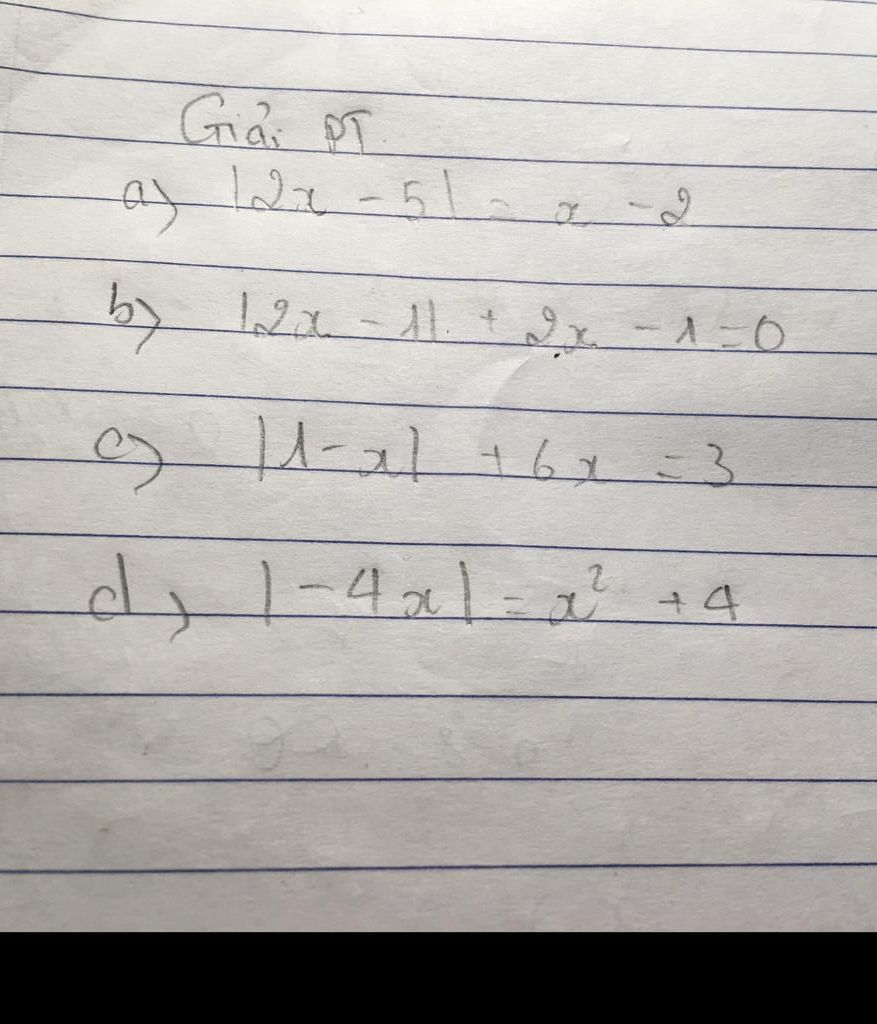 Giải PT
a) |2x - 5| = x - 2
b) |2x - 1| + 2x - 1 = 0
c) |1 - x| + 6x = 3
d) |-4x| = x² + 4